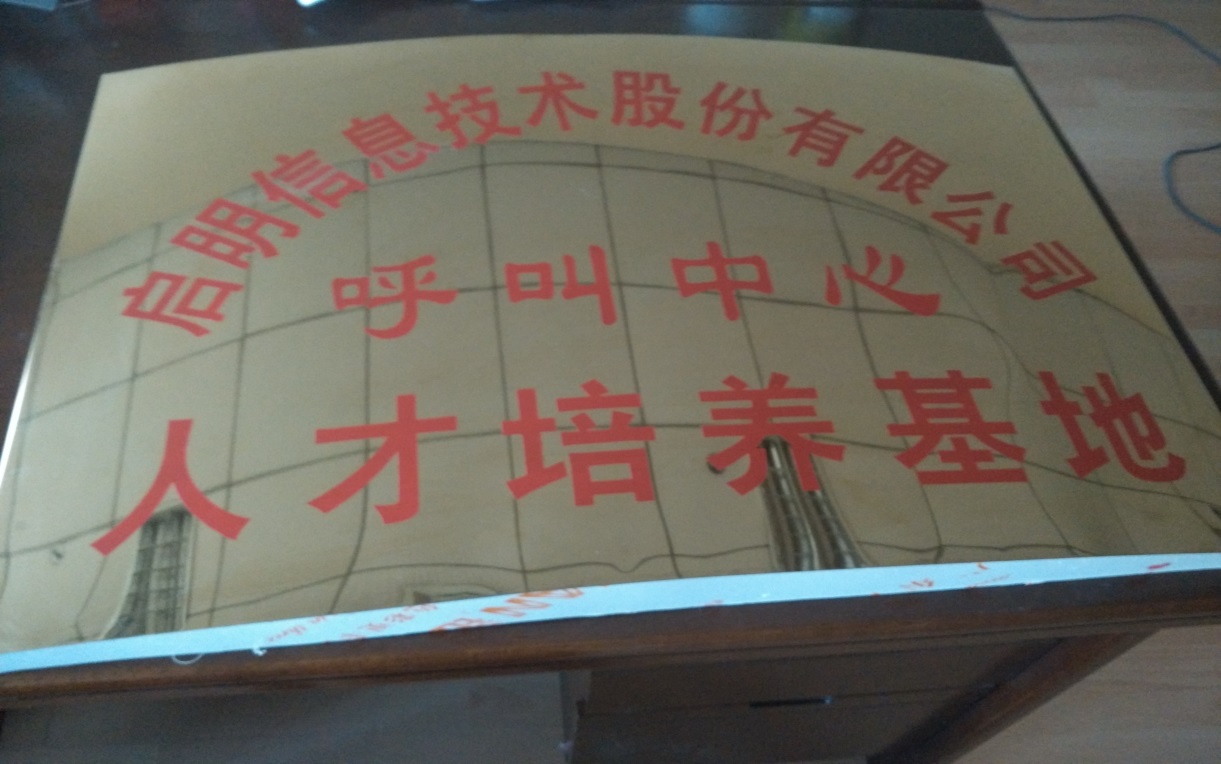 启明信息技术股份有限公司
呼叫中心
人才培养基地